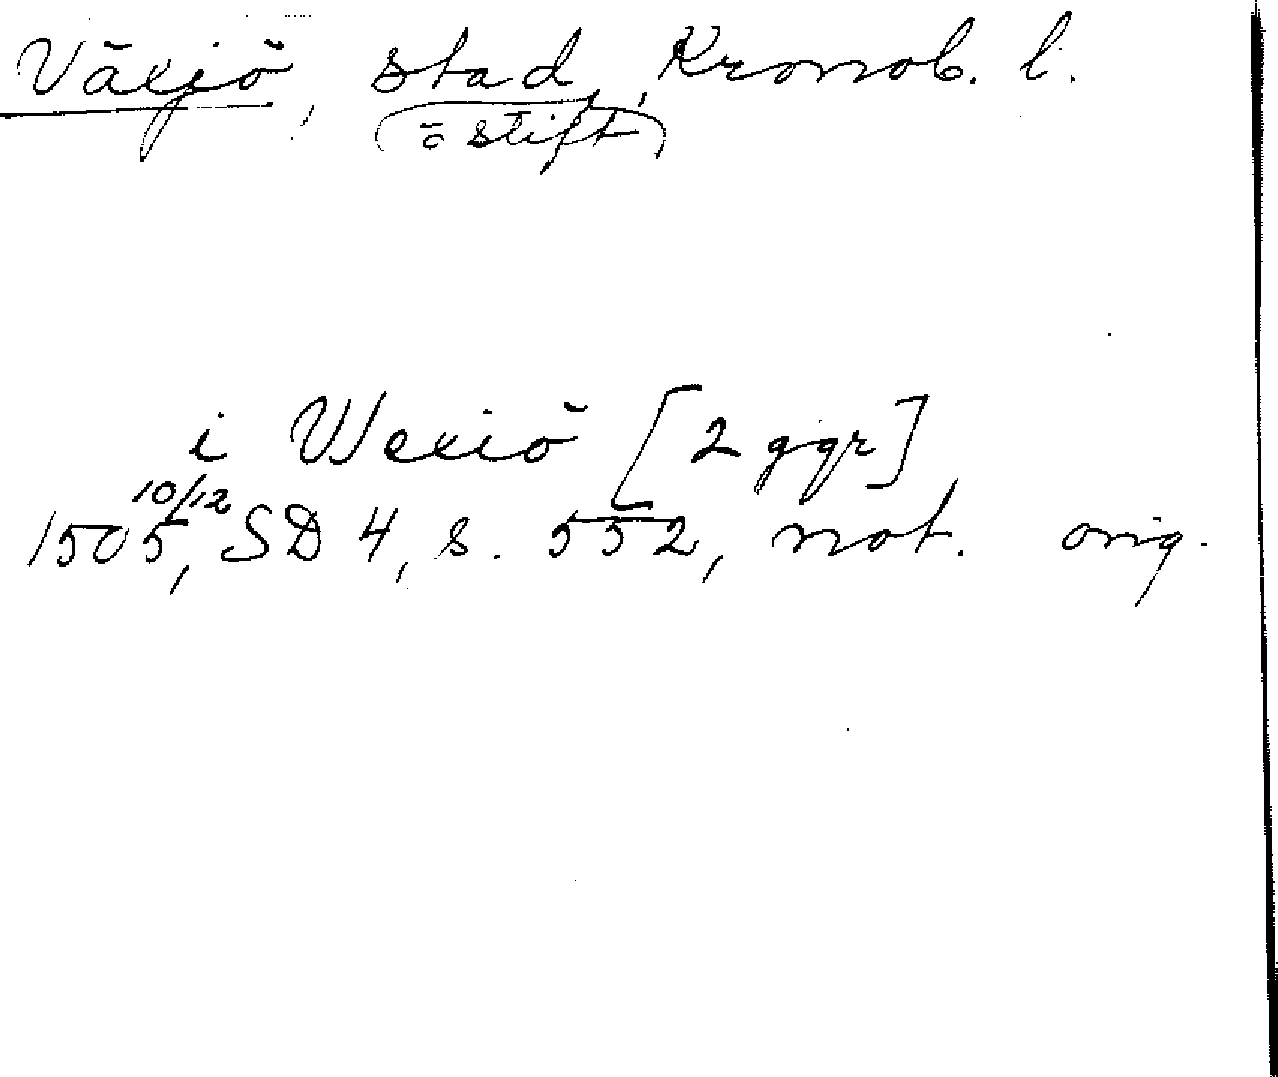 Växjö, stad, Kronob. l.
(o stift)
i Wexiö [2 ggr]
10/12
1505, SD 4, s. 552, not. orig.